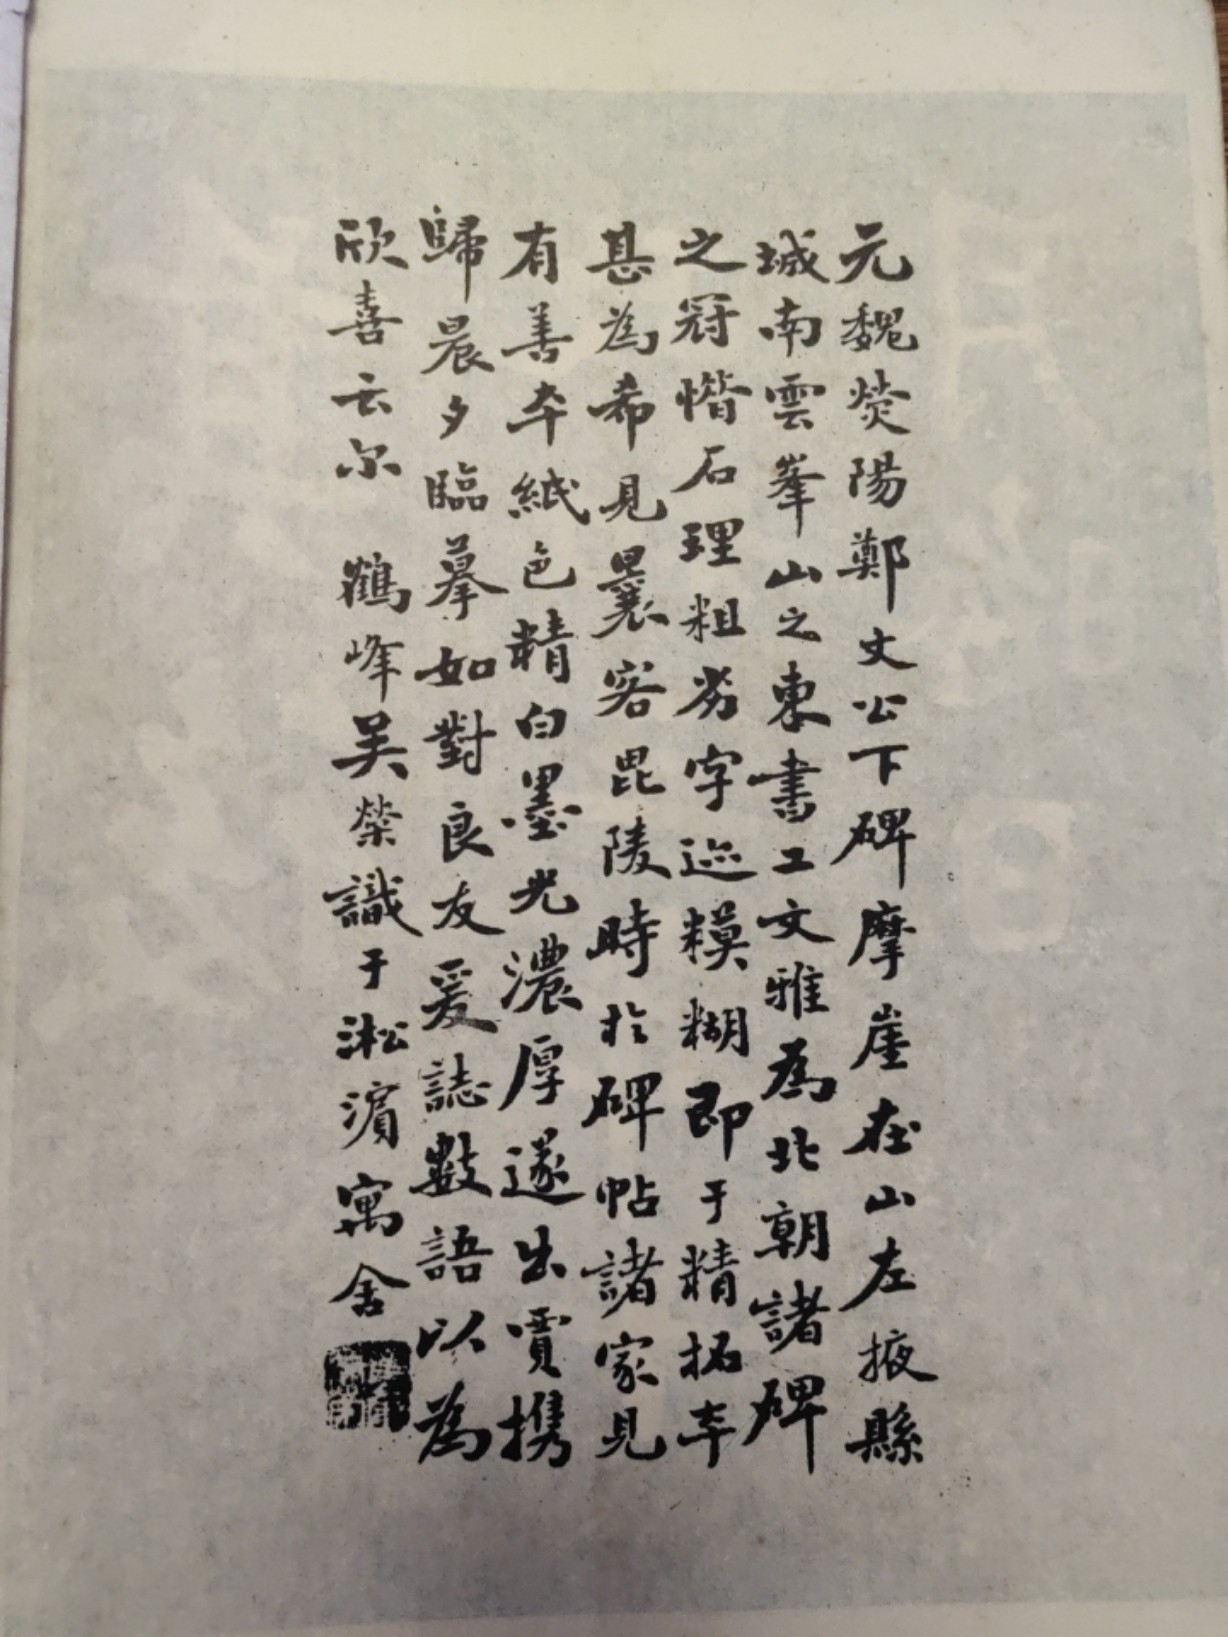 元魏熒陽鄭文公下碑摩崖在山左掖縣
城南雲峯山之東書工文雅為北朝諸碑
之冠惜石理粗劣字迹糢糊即于精拓本
甚為希見曩客毘陵時於碑帖諸家見
有善本紙色精白墨光濃厚遂出賣携
歸晨夕臨摹如對良友爰誌數語以為
欣喜云尔 鶴峰吴榮識于淞濵寓舍